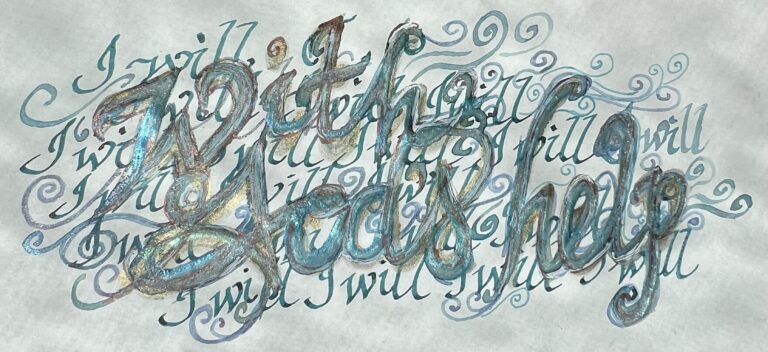 I will
With
I will I will
I will I will I will I will I will
God's help
I will I will I will
I will
I will I will I will I will